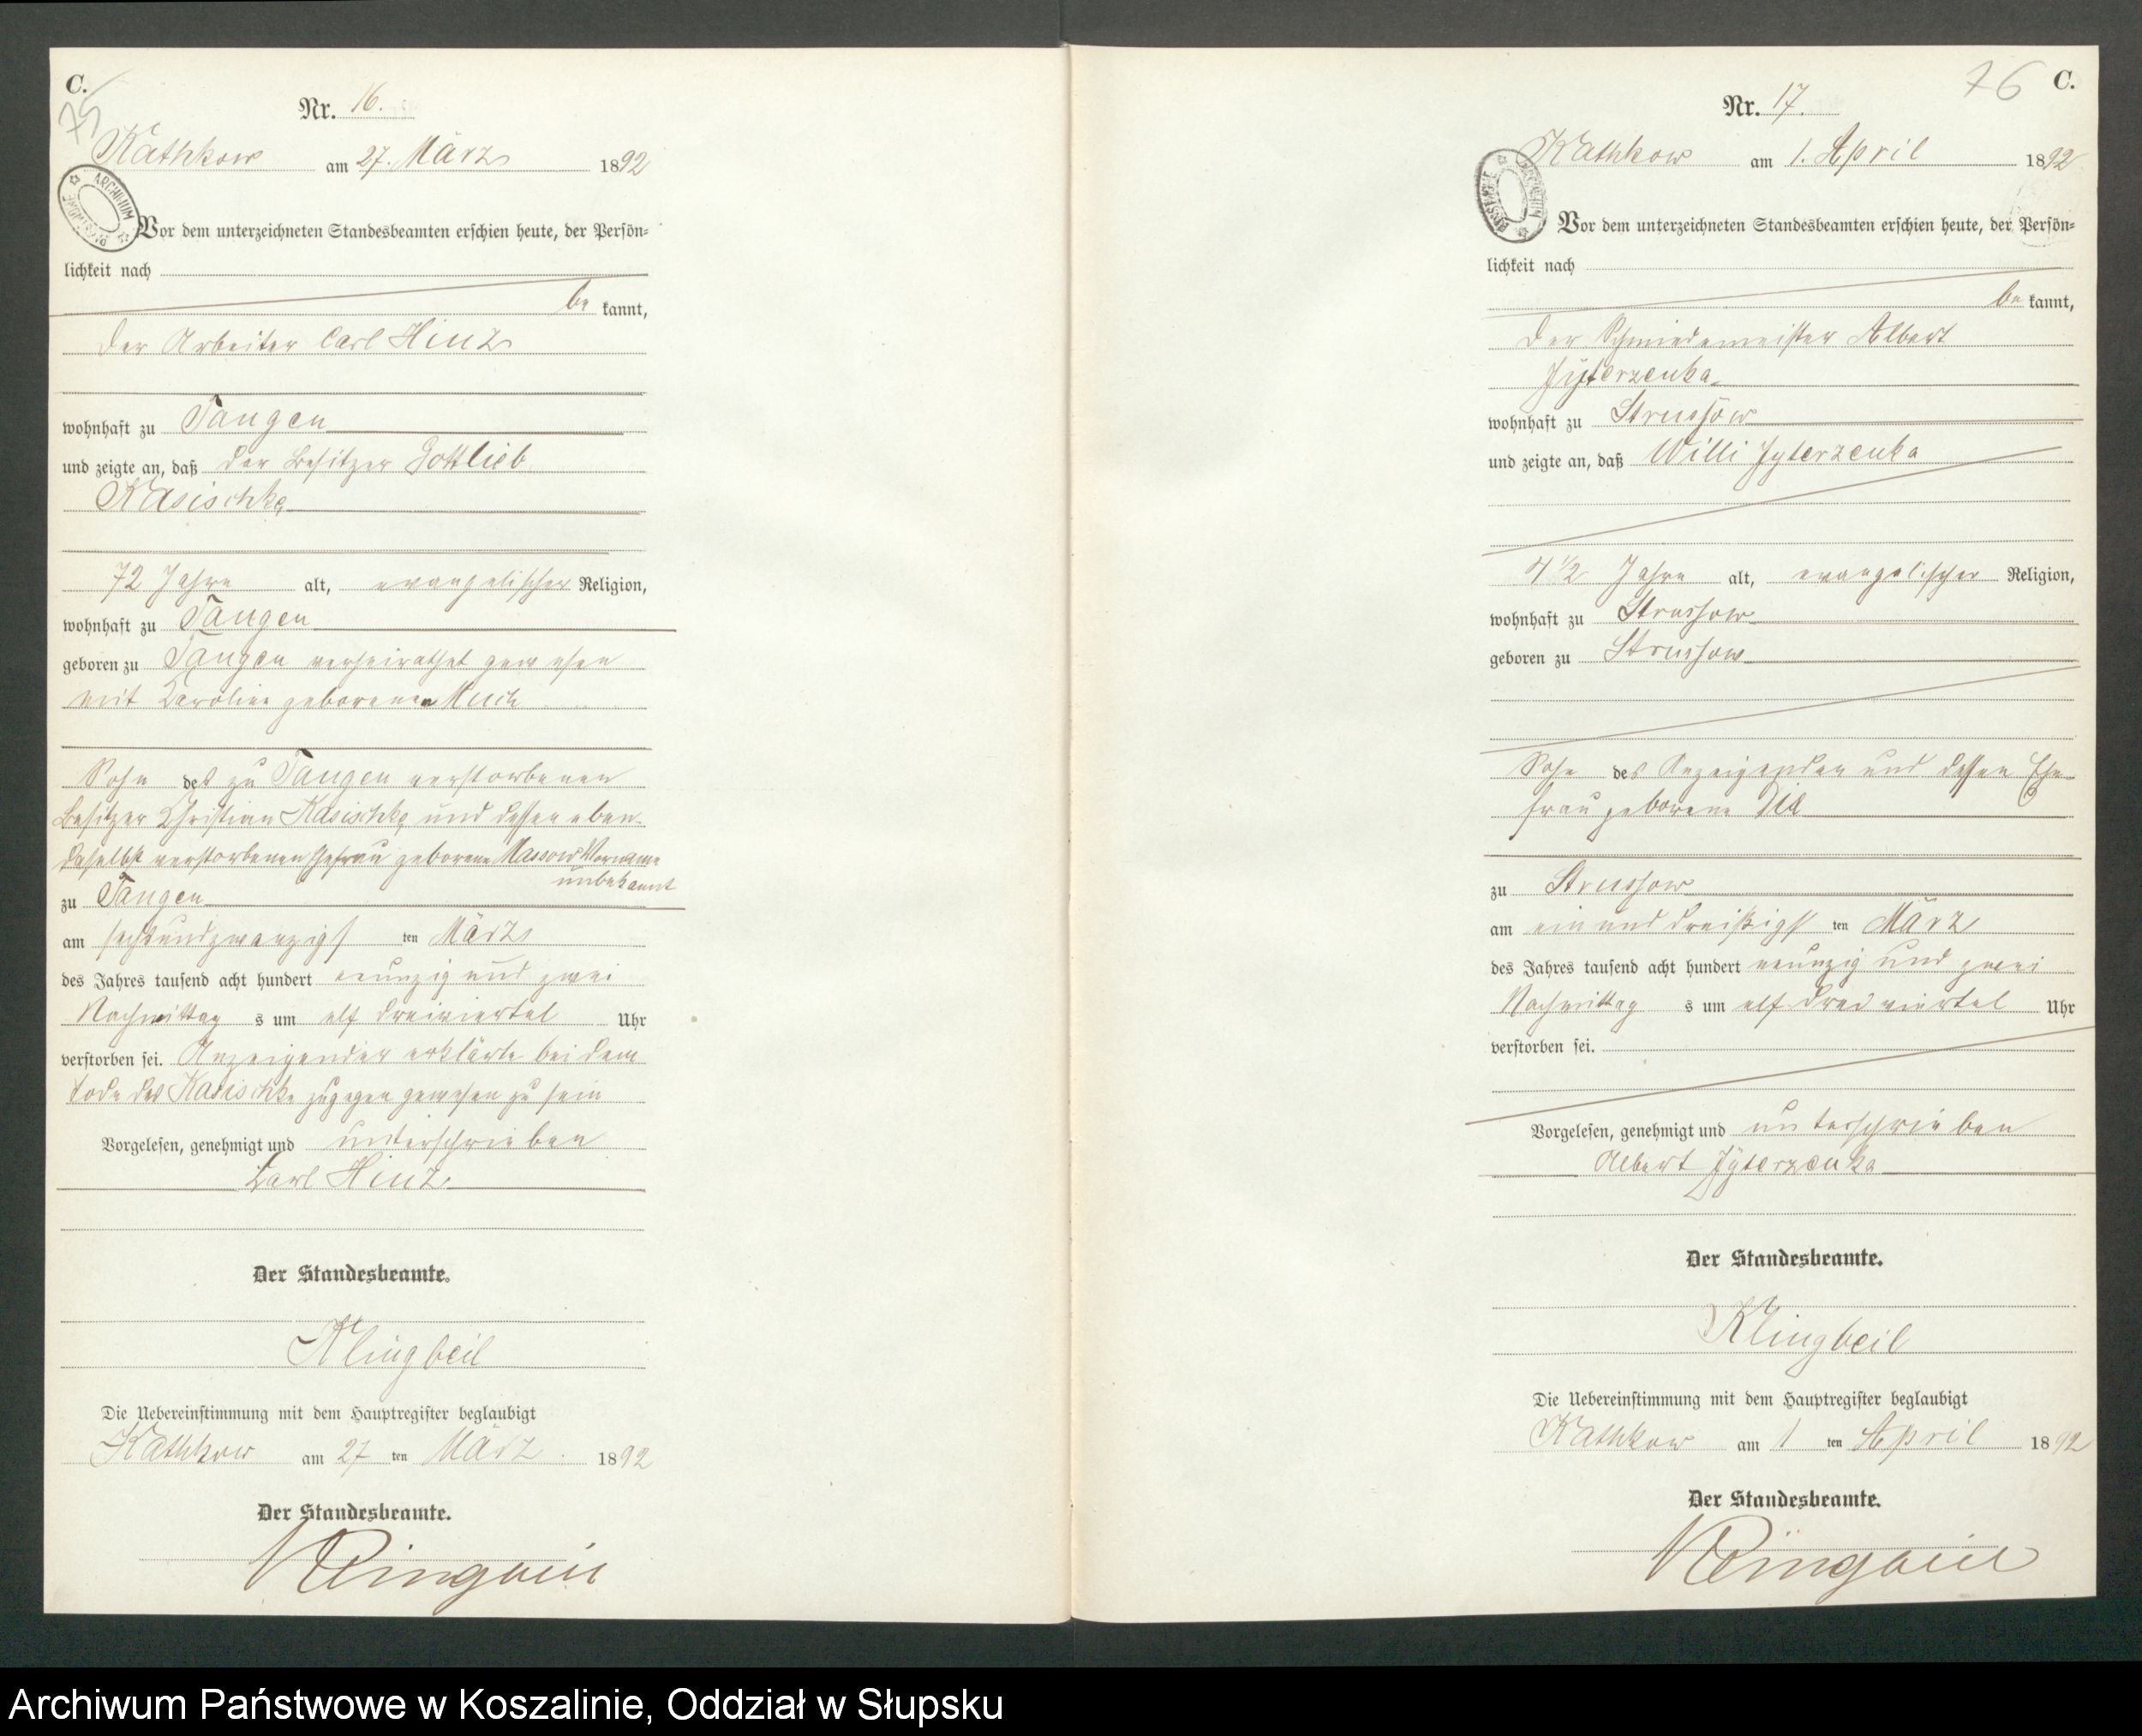 C.
75
Nr. 16.
Kathkow am 27. März 1892
Vor dem unterzeichneten Standesbeamten erschien heute, der Persön-
lichkeit nach
be kannt,
der Arbeiter Carl Hinz
wohnhaft zu Tangen
und zeigte an, daß der Besitzer Gottlieb
Kasischke
72 Jahre alt, evangelischer Religion,
wohnhaft zu Tangen
geboren zu Tangen verheirathet gewesen
mit Karoline geborenen Much
Sohn des zu Tangen verstorbenen
Besitzer Christian Kasischke und dessen eben-
daselbst verstorbenen Ehefrau geborene Massow Vorname
unbekannt
zu Tangen
am sechsundzwanzigs ten März
des Jahres tausend acht hundert neunzig und zwei
Nachmittag s um elf dreiviertel Uhr
verstorben sei. Anzeigender erklärte bei dem
Tode des Kasischke zugegen gewesen zu sein
Vorgelesen, genehmigt und unterschrieben
Karl Hinz
Der Standesbeamte.
Klingbeil
Die Uebereinstimmung mit dem Hauptregister beglaubigt
Kathkow am 27 ten März 1892
Der Standesbeamte.
Klingbeil
76 C.
Nr. 17.
Kathkow am 1. April 1892
Vor dem unterzeichneten Standesbeamten erschien heute, der Persön-
lichkeit nach
be kannt,
der Schmiedemeister Albert
Jyterzenka
wohnhaft zu Strussow
und zeigte an, daß Willi Jyterzenka
4 1/2 Jahre alt, evangelischer Religion,
wohnhaft zu Strussow
geboren zu Strussow
Sohn des Anzeigenden und dessen Ehe-
frau geborene
zu Strussow
am ein und dreißigs ten März
des Jahres tausend acht hundert neunzig und zwei
Nachmittag s um elf dreiviertel Uhr
verstorben sei.
Vorgelesen, genehmigt und unterschrieben
Albert Jyterzenka
Der Standesbeamte.
Klingbeil
Die Uebereinstimmung mit dem Hauptregister beglaubigt
Kathkow am 1 ten April 1892
Der Standesbeamte.
Klingbeil
Archiwum Państwowe w Koszalinie, Oddział w Słupsku